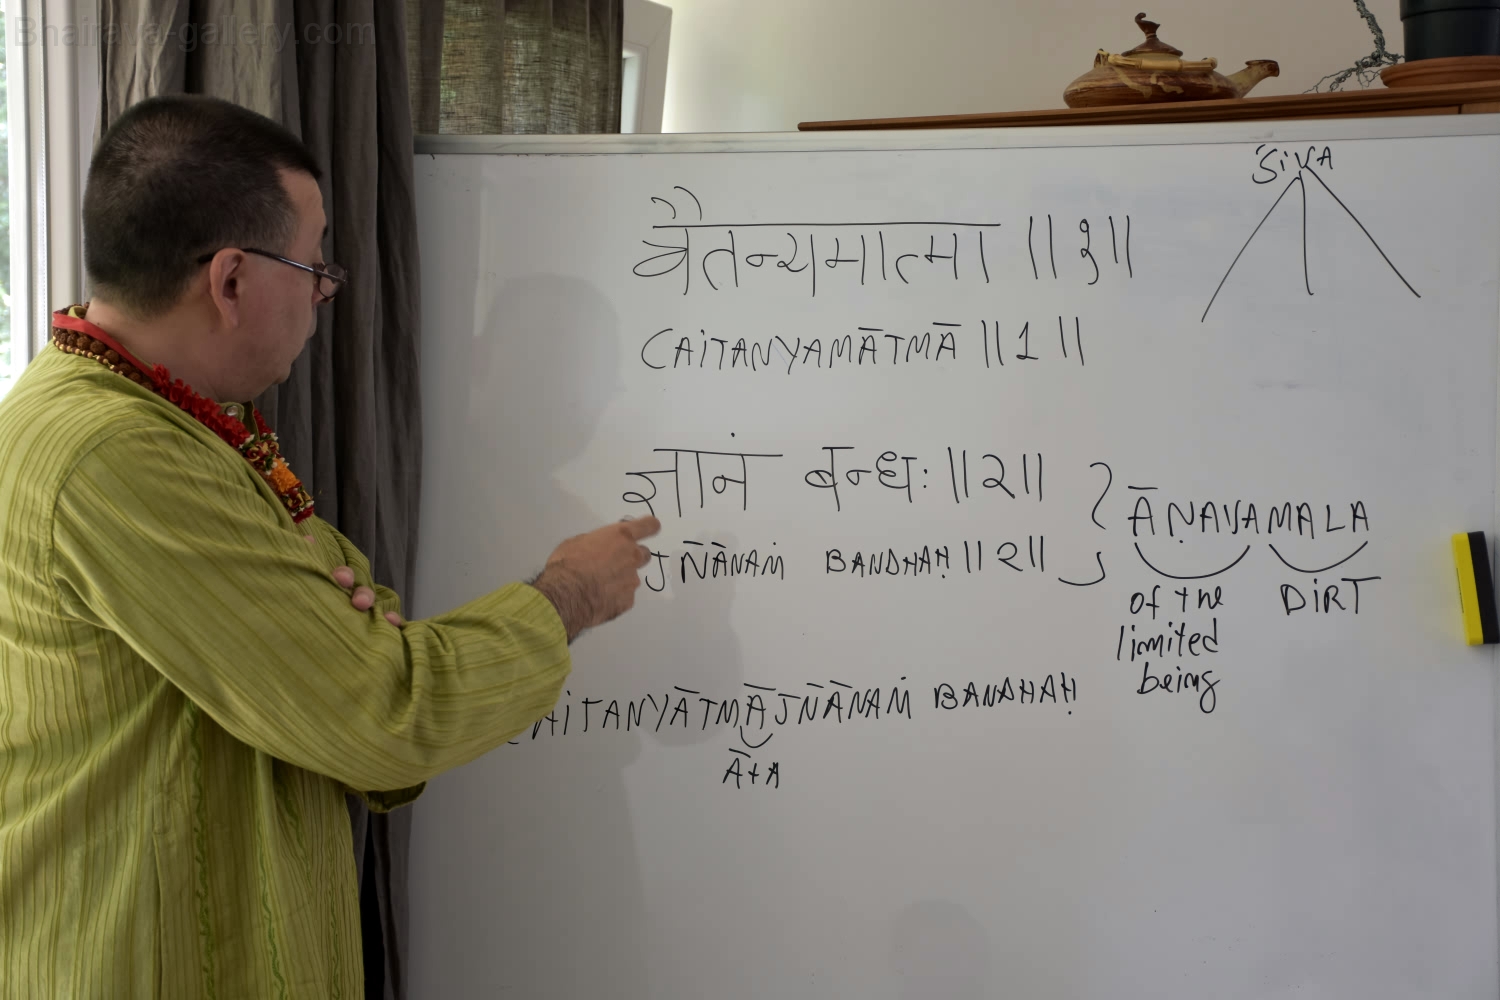 Bhairava-gallery.com
ŚiVA
चैतन्यमात्मा ||१||
CAiTANYAMĀTMĀ ||1||
ज्ञानं बन्धः ||२||
JÑĀNAṀ BANDHAḤ ||२||
ĀṆAVAMALA
of the
limited
being
DiRT
AiTANYĀTMĀJÑĀNAṀ BANDHAḤ
Ā+A